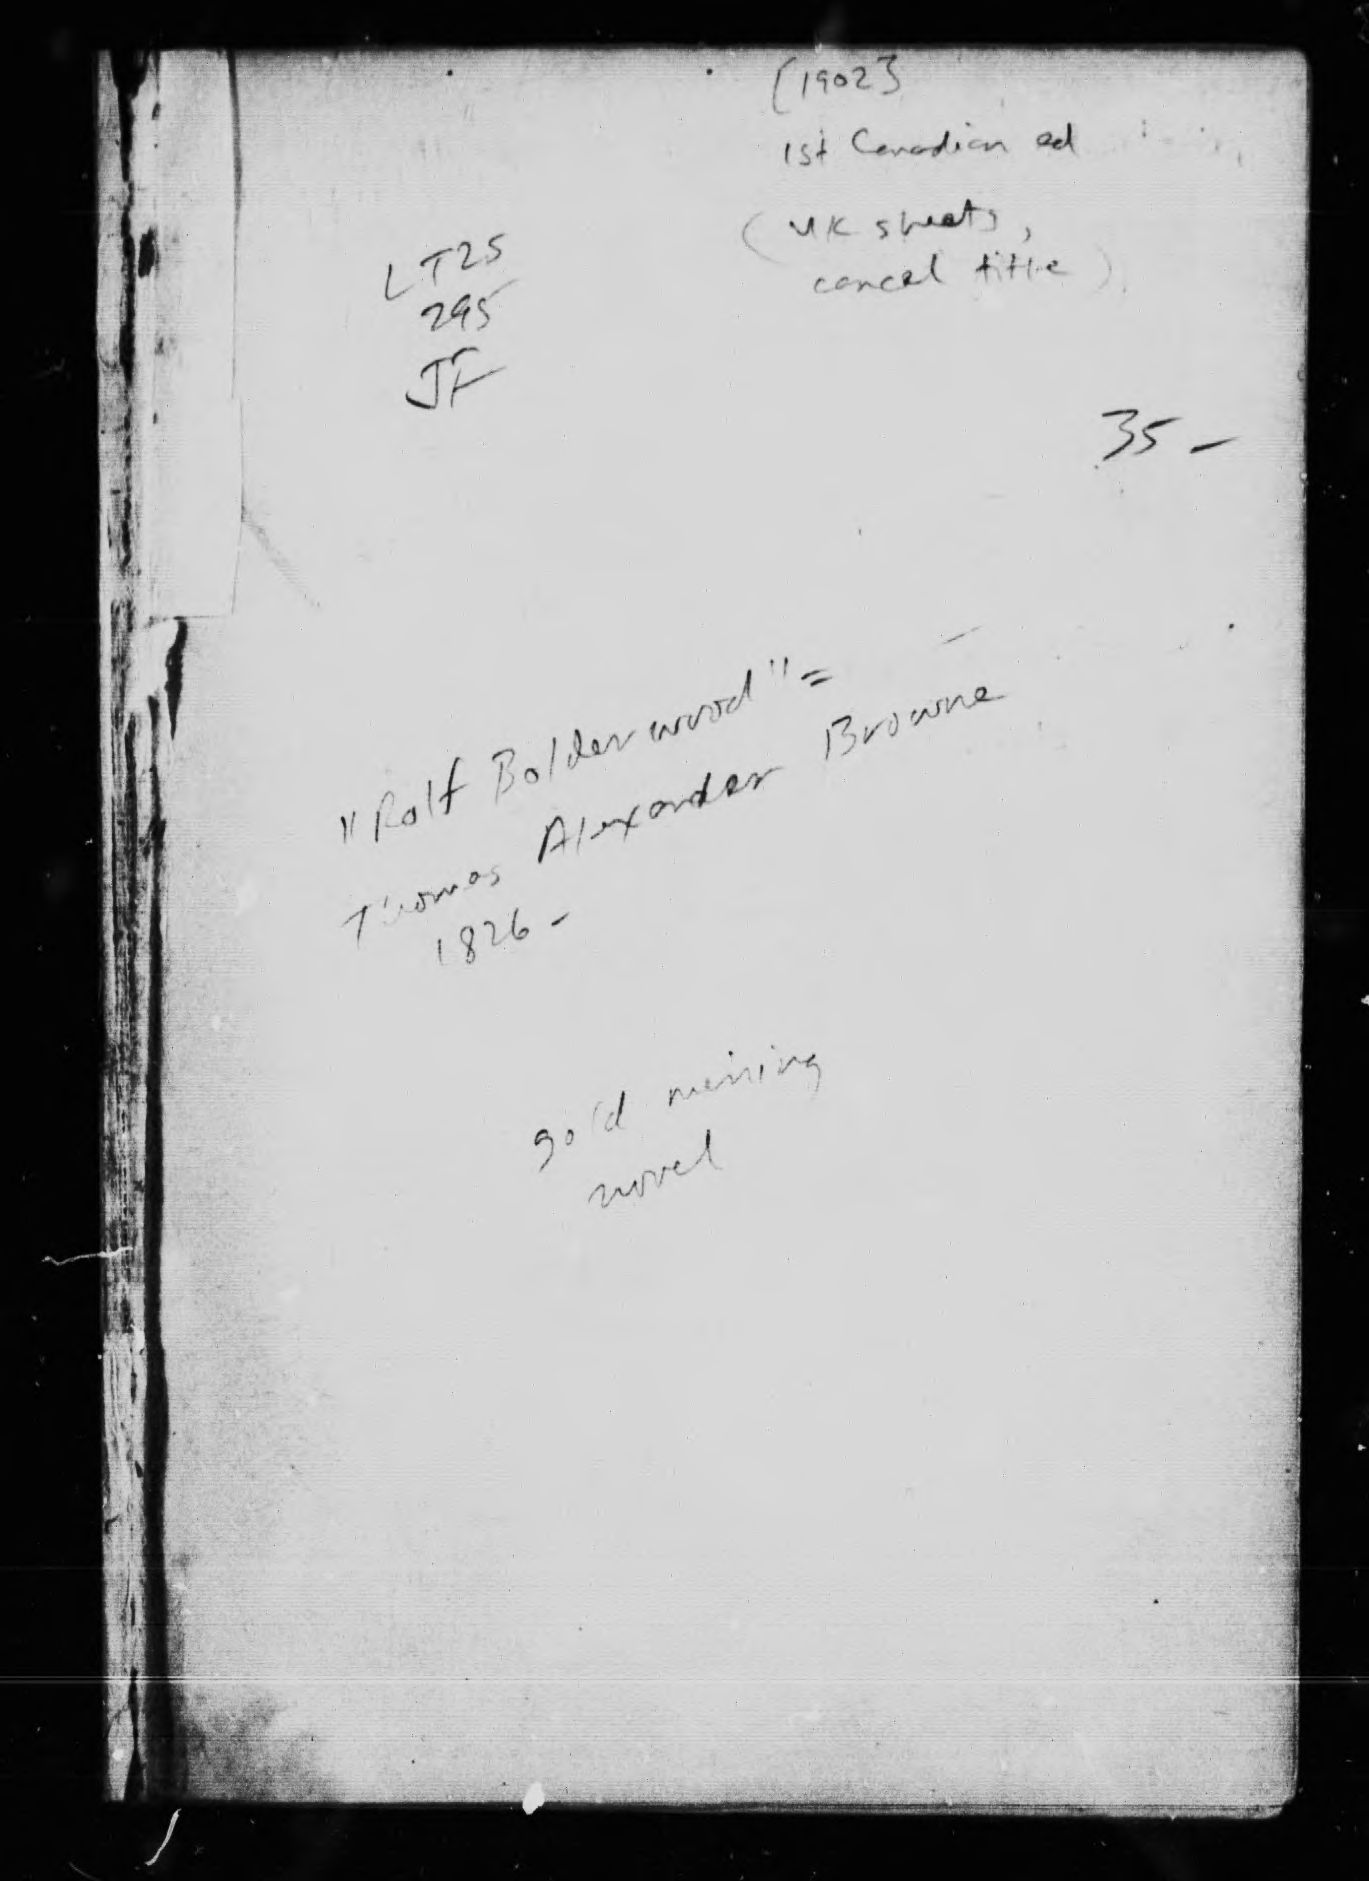 [1902]
1st Canadian ed
(UK sheets,
cancel title)
LT25
295
JF
35 -
"Rolf Bolderwood" =
Thomas Alexander Browne
1826 -
gold mining
novel